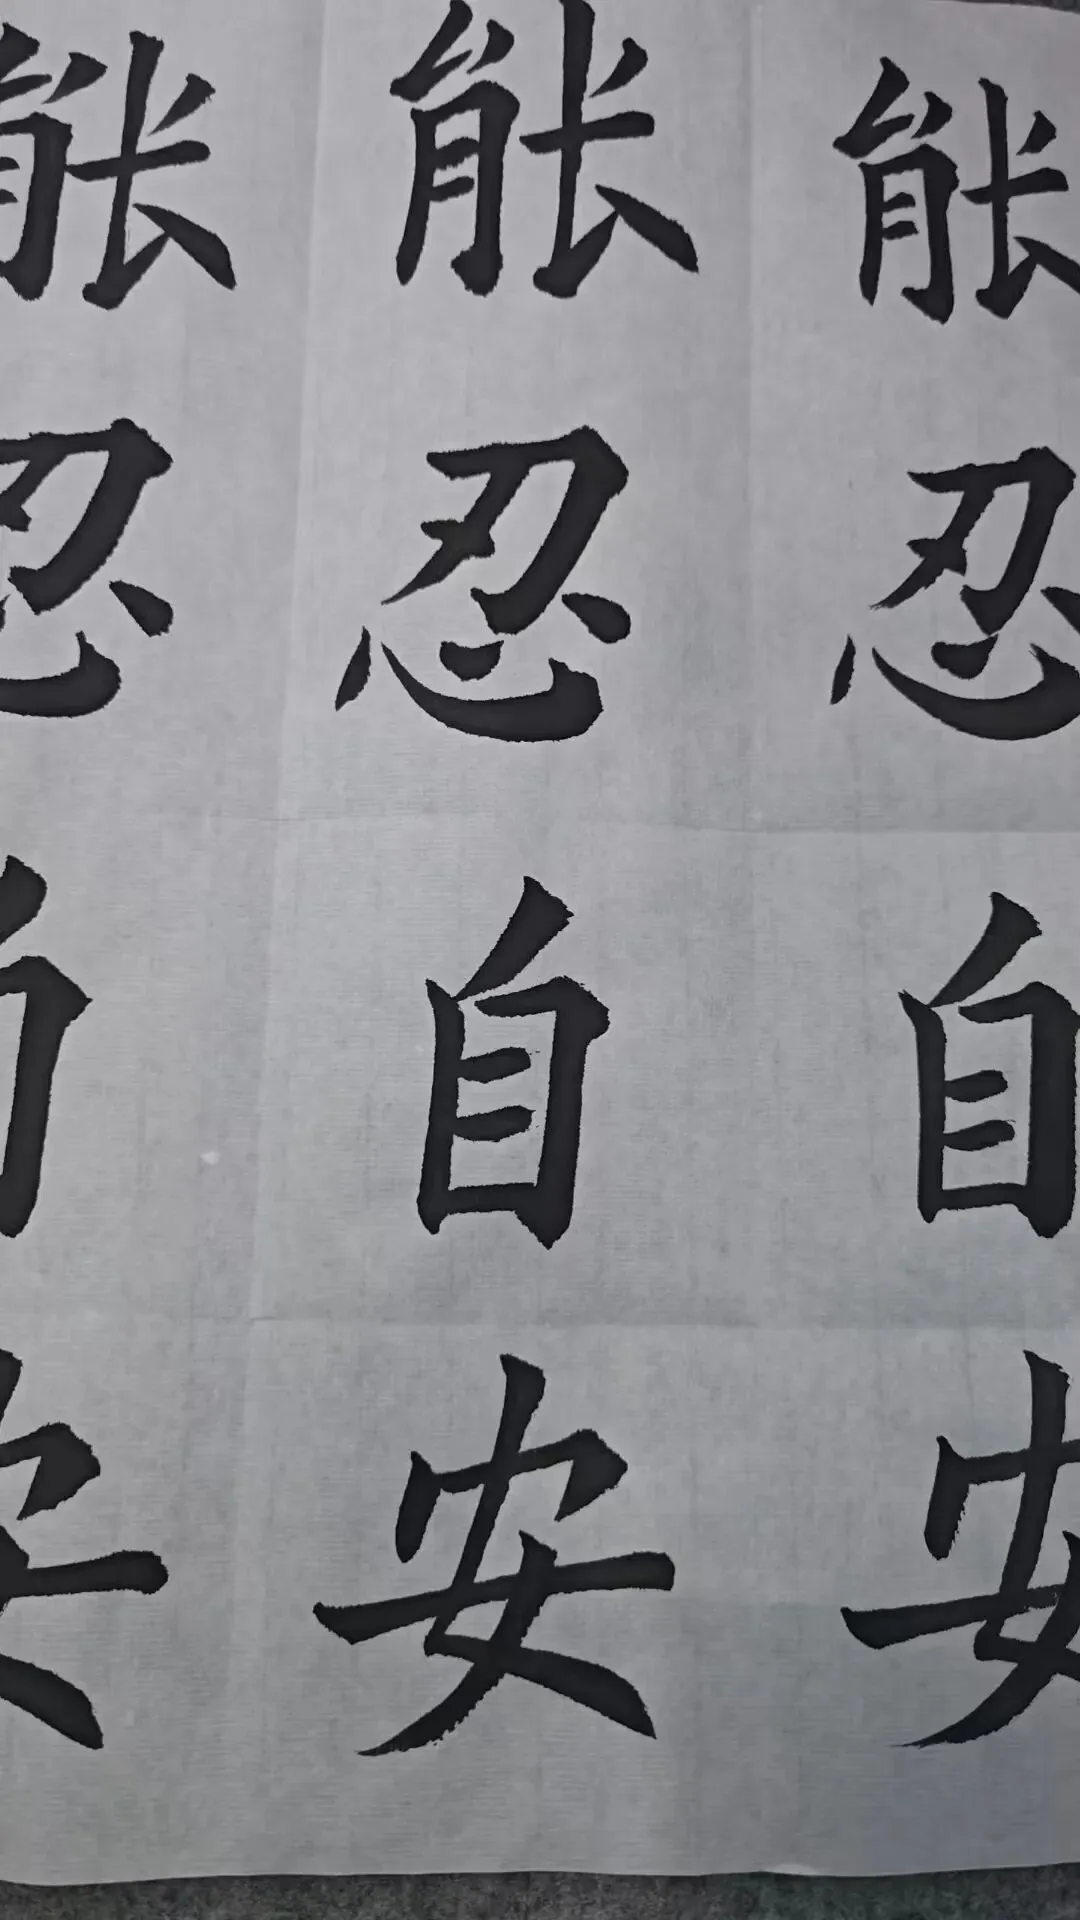 能忍自安
能忍自安
能忍自安